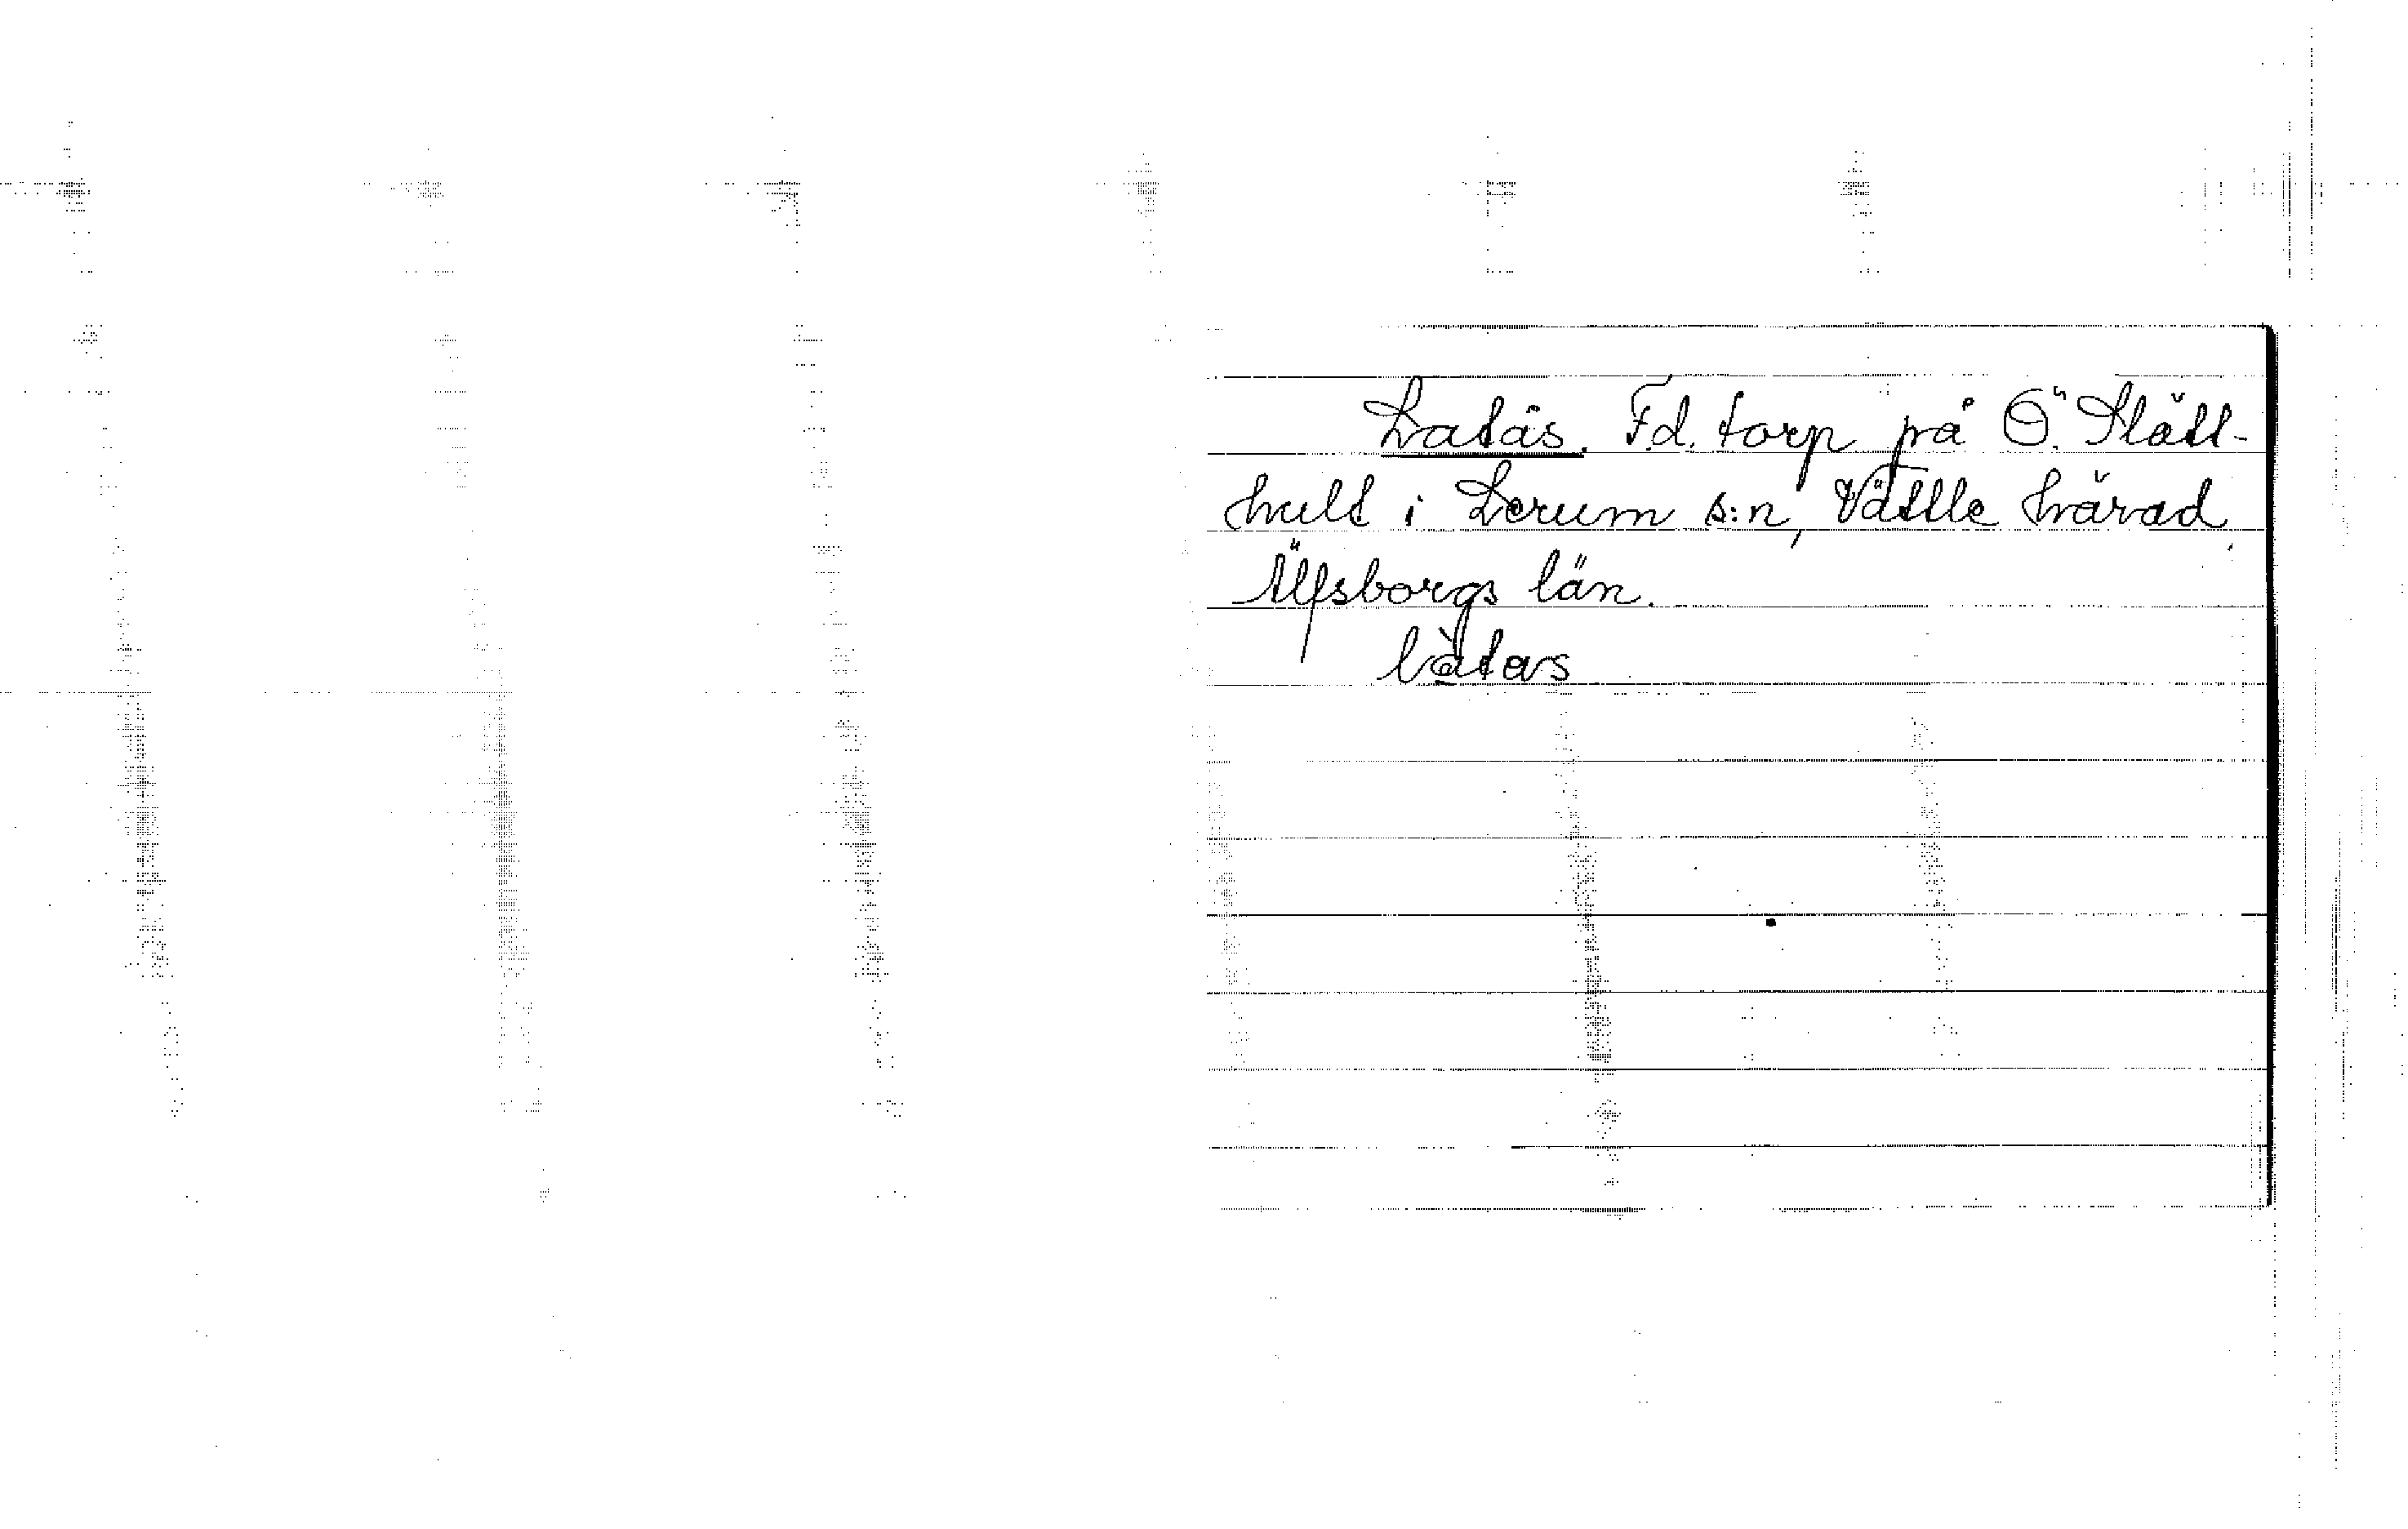 Latås. F.d. torp på Ö. Slätt-
hult i Lerum s:n, Vättle härad,
Älfsborgs län.
làtas